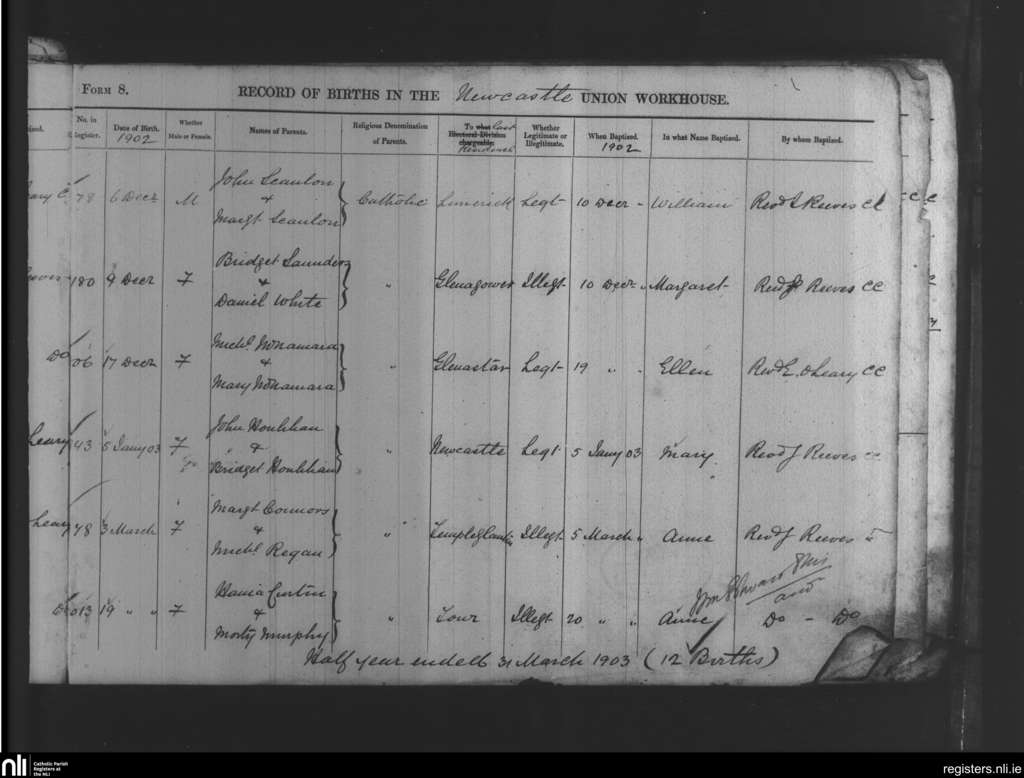 FORM 8.
RECORD OF BIRTHS IN THE Newcastle UNION WORKHOUSE.
No. in Register. Date of Birth. 1902 Whether Male or Female. Names of Parents. Religious Denomination of Parents. To what last Electoral Division chargeable. Residence Whether Legitimate or Illegitimate. When Baptised. 1902 In what Name Baptised. By whom Baptised.
John Scanlon
78 6 Decr M & Catholic Limerick Legt 10 Decr William Revd J Reeves CC
Margt Scanlon
Bridget Saunders
180 9 Decr F & " Glenagower Illegt 10 Decr " Margaret Revd J Reeves CC
Daniel White
Michl McNamara
Do 06 17 Decr F & " Glenastar Legt 19 " " Ellen Revd E. O Leary CC
Mary McNamara
John Houlihan
Leary 43 5 Jany 03 F & " Newcastle Legt 5 Jany 03 Mary Revd J Reeves CC
Bridget Houlihan
Margt Connors
Leary 78 3 March F & " Templeglantin Illegt 5 March " Anne Revd J Reeves "
Michl Regan
Curtin
013 19 " " F & " Illegt 20 " " Anne Do - Do
Morty Murphy
Half year ended 31 March 1903 (12 Births)
nli
Catholic Parish
Registers at
the NLI
registers.nli.ie